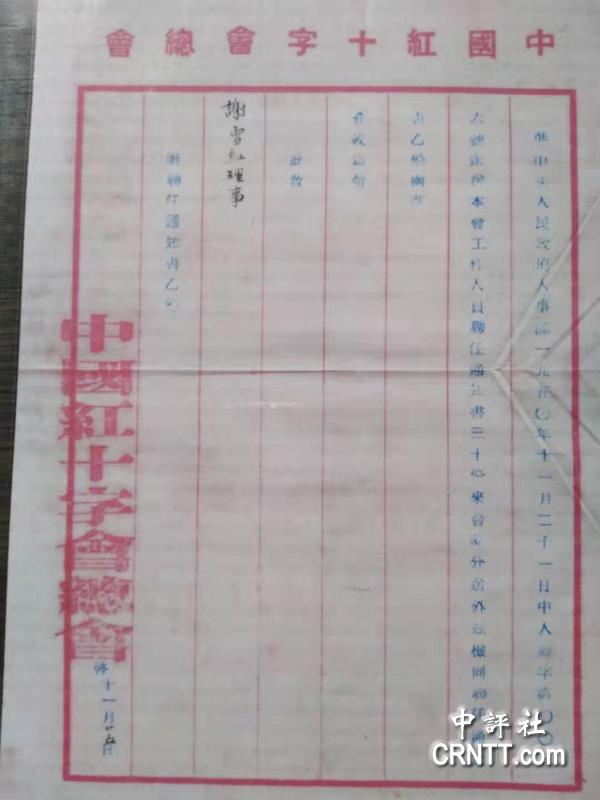 中國紅十字會總會
准中央人民政府人事部一九五〇年十一月二十一日中人字第〇〇
號函發本會工作人員聘任通知書三十份來會除分送外茲檢同聘任通
書乙份函
查收為荷
此致
謝雪紅理事
附聘任通知書乙份
中國紅十字會總會
啓十一月廿五日
中評社
CRNTT.com